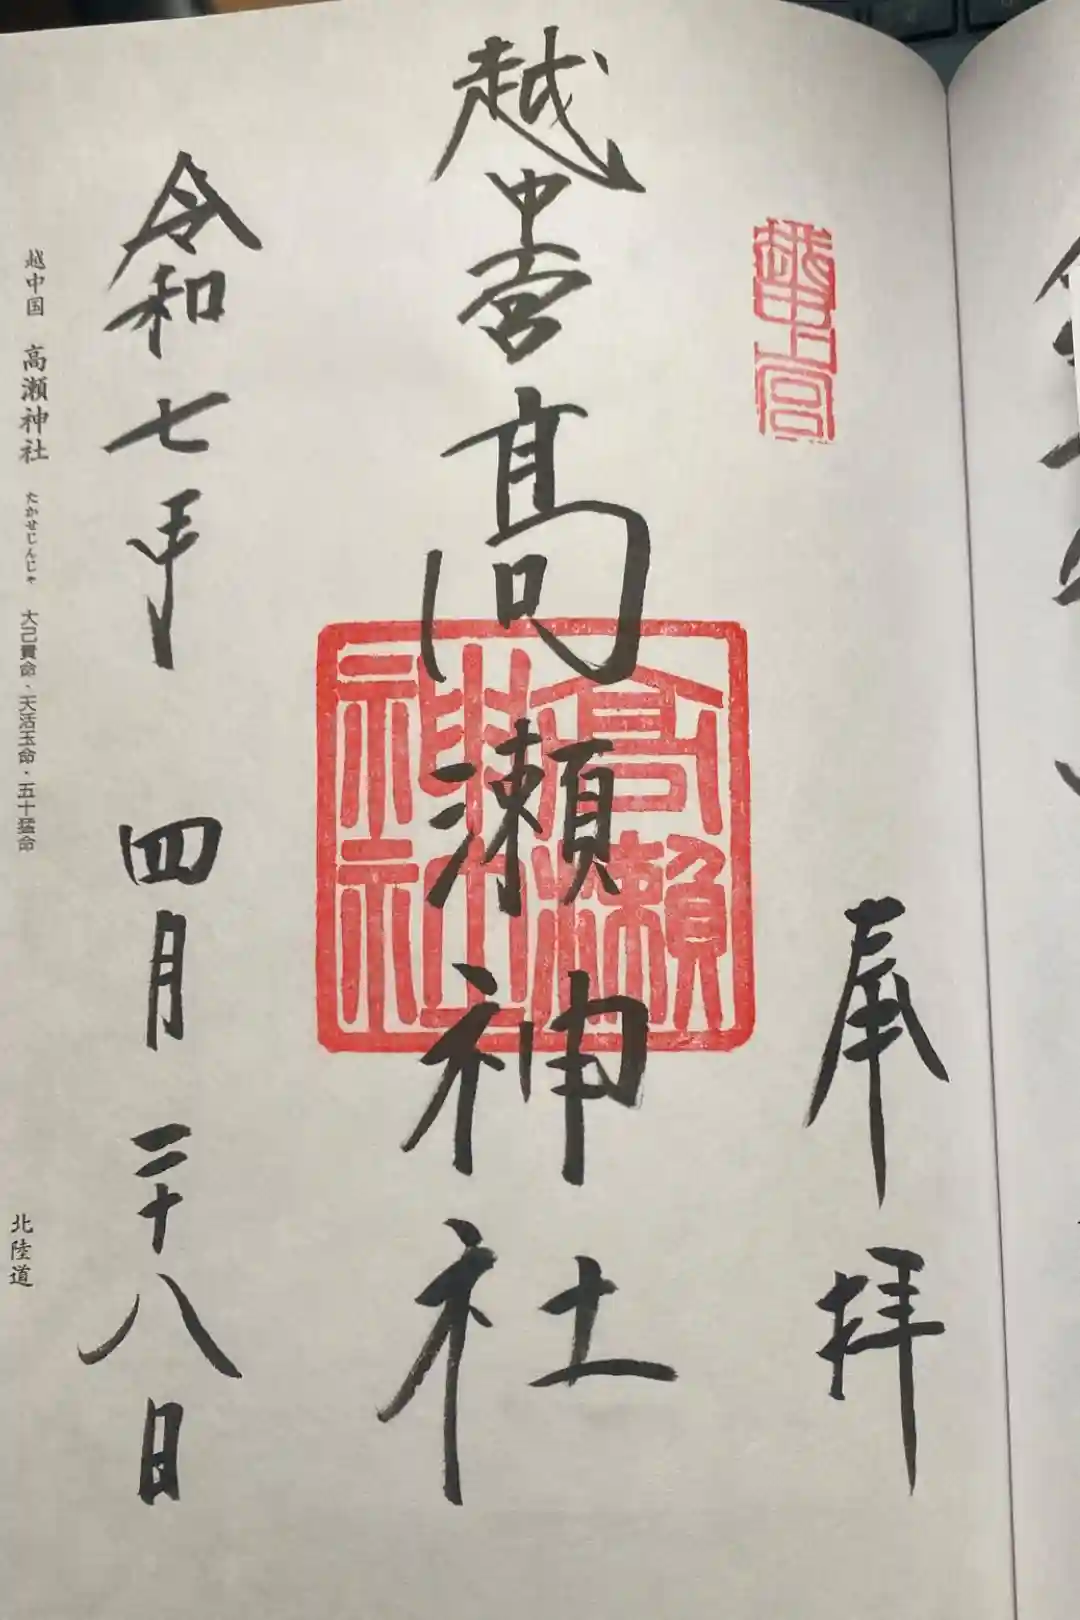 奉拝
越中一宮
越中一宮髙瀬神社
高瀬神社
令和七年 四月 二十八日
越中国 高瀬神社 たかせじんじゃ 大己貴命・天活玉命・五十猛命
北陸道